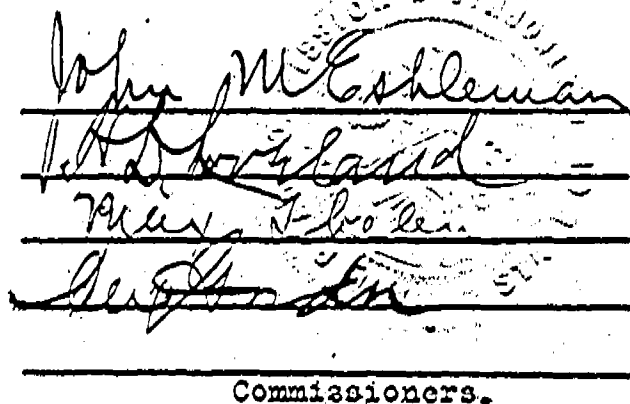 John M Eshleman
H. D. Loveland
Max Thelen
Gordon
Commissioners.